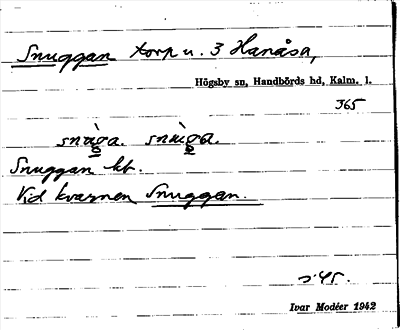 Snuggan torp u. 3 Hanåsa,
Högsby sn, Handbörds hd, Kalm. l.
J65
snùga. snùga.
Snuggan kb.
Vid kvarnen Snuggan.
Ivar Modéer 1942